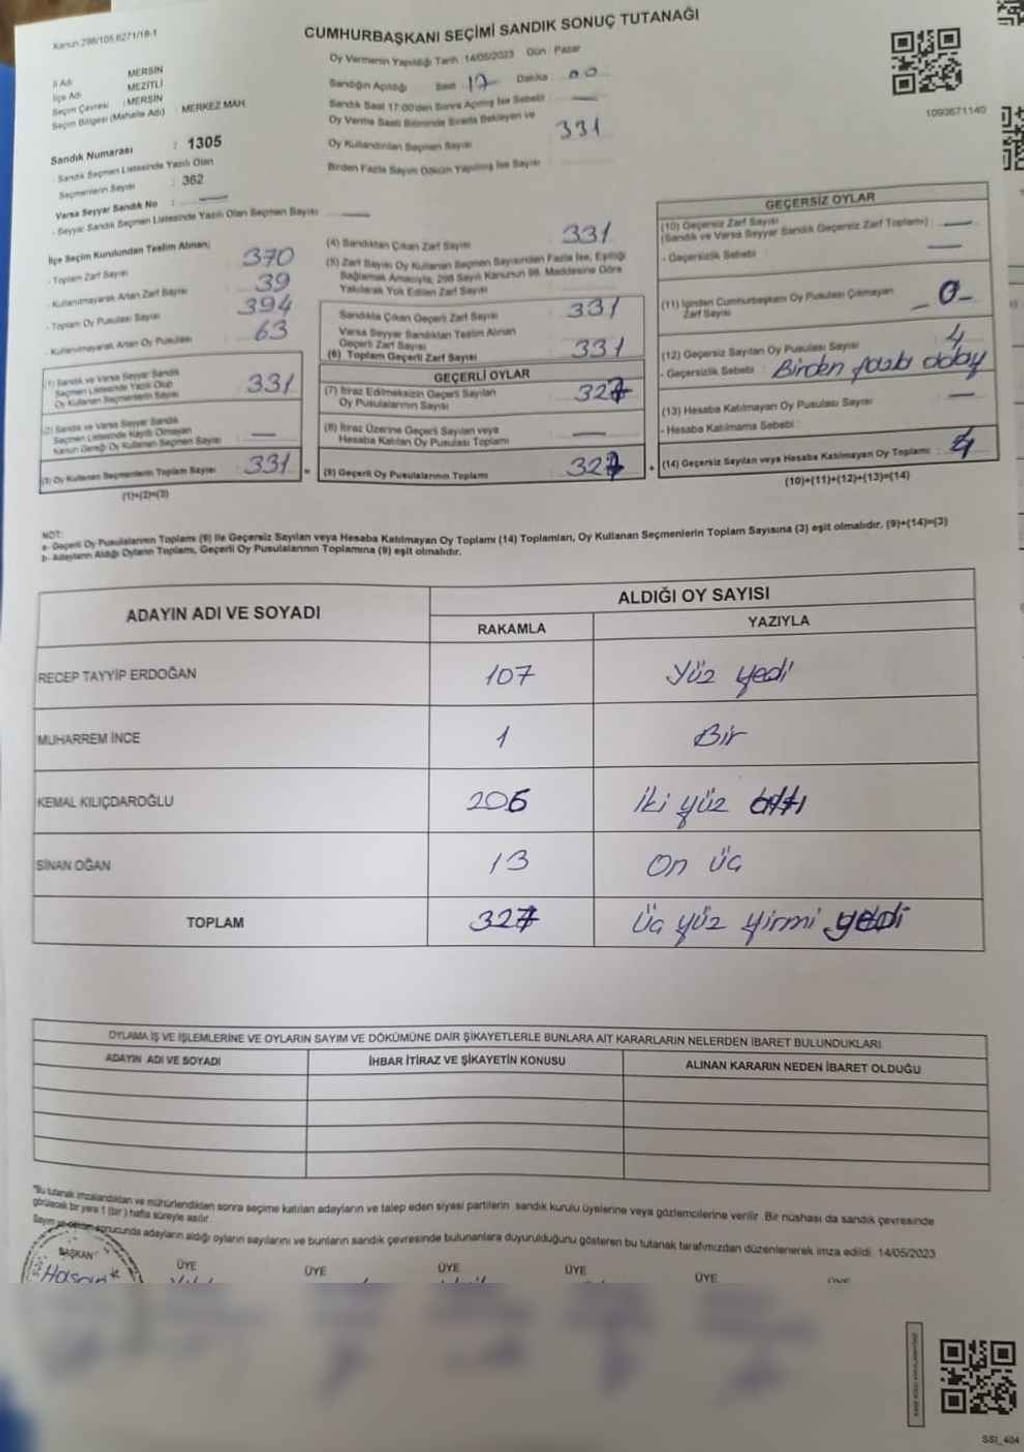 Kanun 298/105 6271/18-1
CUMHURBAŞKANI SEÇİMİ SANDIK SONUÇ TUTANAĞI
Oy Vermenin Yapıldığı Tarih : 14/05/2023 Gün : Pazar
İl Adı : MERSİN
İlçe Adı : MEZİTLİ
Seçim Çevresi : MERSİN
Seçim Bölgesi (Mahalle Adı) : MERKEZ MAH.
Sandığın Açıldığı Saat 17 Dakika 00
Sandık Saat 17:00'den Sonra Açılmış İse Sebebi —
Oy Verme Saati Bitiminde Sırada Bekleyen ve
Oy Kullandırılan Seçmen Sayısı 331
Birden Fazla Sayım Döküm Yapılmış İse Sayısı
1093671140
Sandık Numarası : 1305
- Sandık Seçmen Listesinde Yazılı Olan
Seçmenlerin Sayısı : 362
Varsa Seyyar Sandık No : —
- Seyyar Sandık Seçmen Listesinde Yazılı Olan Seçmen Sayısı —
İlçe Seçim Kurulundan Teslim Alınan;
- Toplam Zarf Sayısı 370
- Kullanılmayarak Artan Zarf Sayısı 39
- Toplam Oy Pusulası Sayısı 394
- Kullanılmayarak Artan Oy Pusulası 63
(1) Sandık ve Varsa Seyyar Sandık
Seçmen Listesinde Yazılı Olup
Oy Kullanan Seçmenlerin Sayısı 331
(2) Sandık ve Varsa Seyyar Sandık
Seçmen Listesinde Kayıtlı Olmayan
Kanun Gereği Oy Kullanan Seçmen Sayısı —
(3) Oy Kullanan Seçmenlerin Toplam Sayısı 331
(1)+(2)=(3)
(4) Sandıktan Çıkan Zarf Sayısı 331
(5) Zarf Sayısı Oy Kullanan Seçmen Sayısından Fazla İse, Eşitliği
Sağlamak Amacıyla, 298 Sayılı Kanunun 98. Maddesine Göre
Yakılarak Yok Edilen Zarf Sayısı
Sandıkta Çıkan Geçerli Zarf Sayısı 331
Varsa Seyyar Sandıktan Teslim Alınan
Geçerli Zarf Sayısı
(6) Toplam Geçerli Zarf Sayısı 331
GEÇERLİ OYLAR
(7) İtiraz Edilmeksizin Geçerli Sayılan
Oy Pusulalarının Sayısı 327
(8) İtiraz Üzerine Geçerli Sayılan veya
Hesaba Katılan Oy Pusulası Toplamı —
(9) Geçerli Oy Pusulalarının Toplamı 327
GEÇERSİZ OYLAR
(10) Geçersiz Zarf Sayısı —
(Sandık ve Varsa Seyyar Sandık Geçersiz Zarf Toplamı)
- Geçersizlik Sebebi : —
(11) İçinden Cumhurbaşkanı Oy Pusulası Çıkmayan
Zarf Sayısı -0-
(12) Geçersiz Sayılan Oy Pusulası Sayısı 4
- Geçersizlik Sebebi : Birden fazla aday
(13) Hesaba Katılmayan Oy Pusulası Sayısı —
- Hesaba Katılmama Sebebi :
(14) Geçersiz Sayılan veya Hesaba Katılmayan Oy Toplamı : 4
(10)+(11)+(12)+(13)=(14)
NOT:
a- Geçerli Oy Pusulalarının Toplamı (9) ile Geçersiz Sayılan veya Hesaba Katılmayan Oy Toplamı (14) Toplamları, Oy Kullanan Seçmenlerin Toplam Sayısına (3) eşit olmalıdır. (9)+(14)=(3)
b- Adayların Aldığı Oyların Toplamı, Geçerli Oy Pusulalarının Toplamına (9) eşit olmalıdır.
ADAYIN ADI VE SOYADI
ALDIĞI OY SAYISI
RAKAMLA YAZIYLA
RECEP TAYYİP ERDOĞAN 107 Yüz yedi
MUHARREM İNCE 1 Bir
KEMAL KILIÇDAROĞLU 206 İki yüz altı
SİNAN OĞAN 13 On üç
TOPLAM 327 Üç yüz yirmi yedi
OYLAMA İŞ VE İŞLEMLERİNE VE OYLARIN SAYIM VE DÖKÜMÜNE DAİR ŞİKAYETLERLE BUNLARA AİT KARARLARIN NELERDEN İBARET BULUNDUKLARI
ADAYIN ADI VE SOYADI İHBAR İTİRAZ VE ŞİKAYETİN KONUSU ALINAN KARARIN NEDEN İBARET OLDUĞU
*Bu tutanak imzalandıktan ve mühürlendikten sonra seçime katılan adayların ve talep eden siyasi partilerin sandık kurulu üyelerine veya gözlemcilerine verilir. Bir nüshası da sandık çevresinde
görülecek bir yere 1 (bir) hafta süreyle asılır.
Sayım ve döküm sonucunda adayların aldığı oyların sayılarını ve bunların sandık çevresinde bulunanlara duyurulduğunu gösteren bu tutanak tarafımızdan düzenlenerek imza edildi. 14/05/2023
BAŞKAN ÜYE ÜYE ÜYE ÜYE ÜYE
Hasan
SSI_404